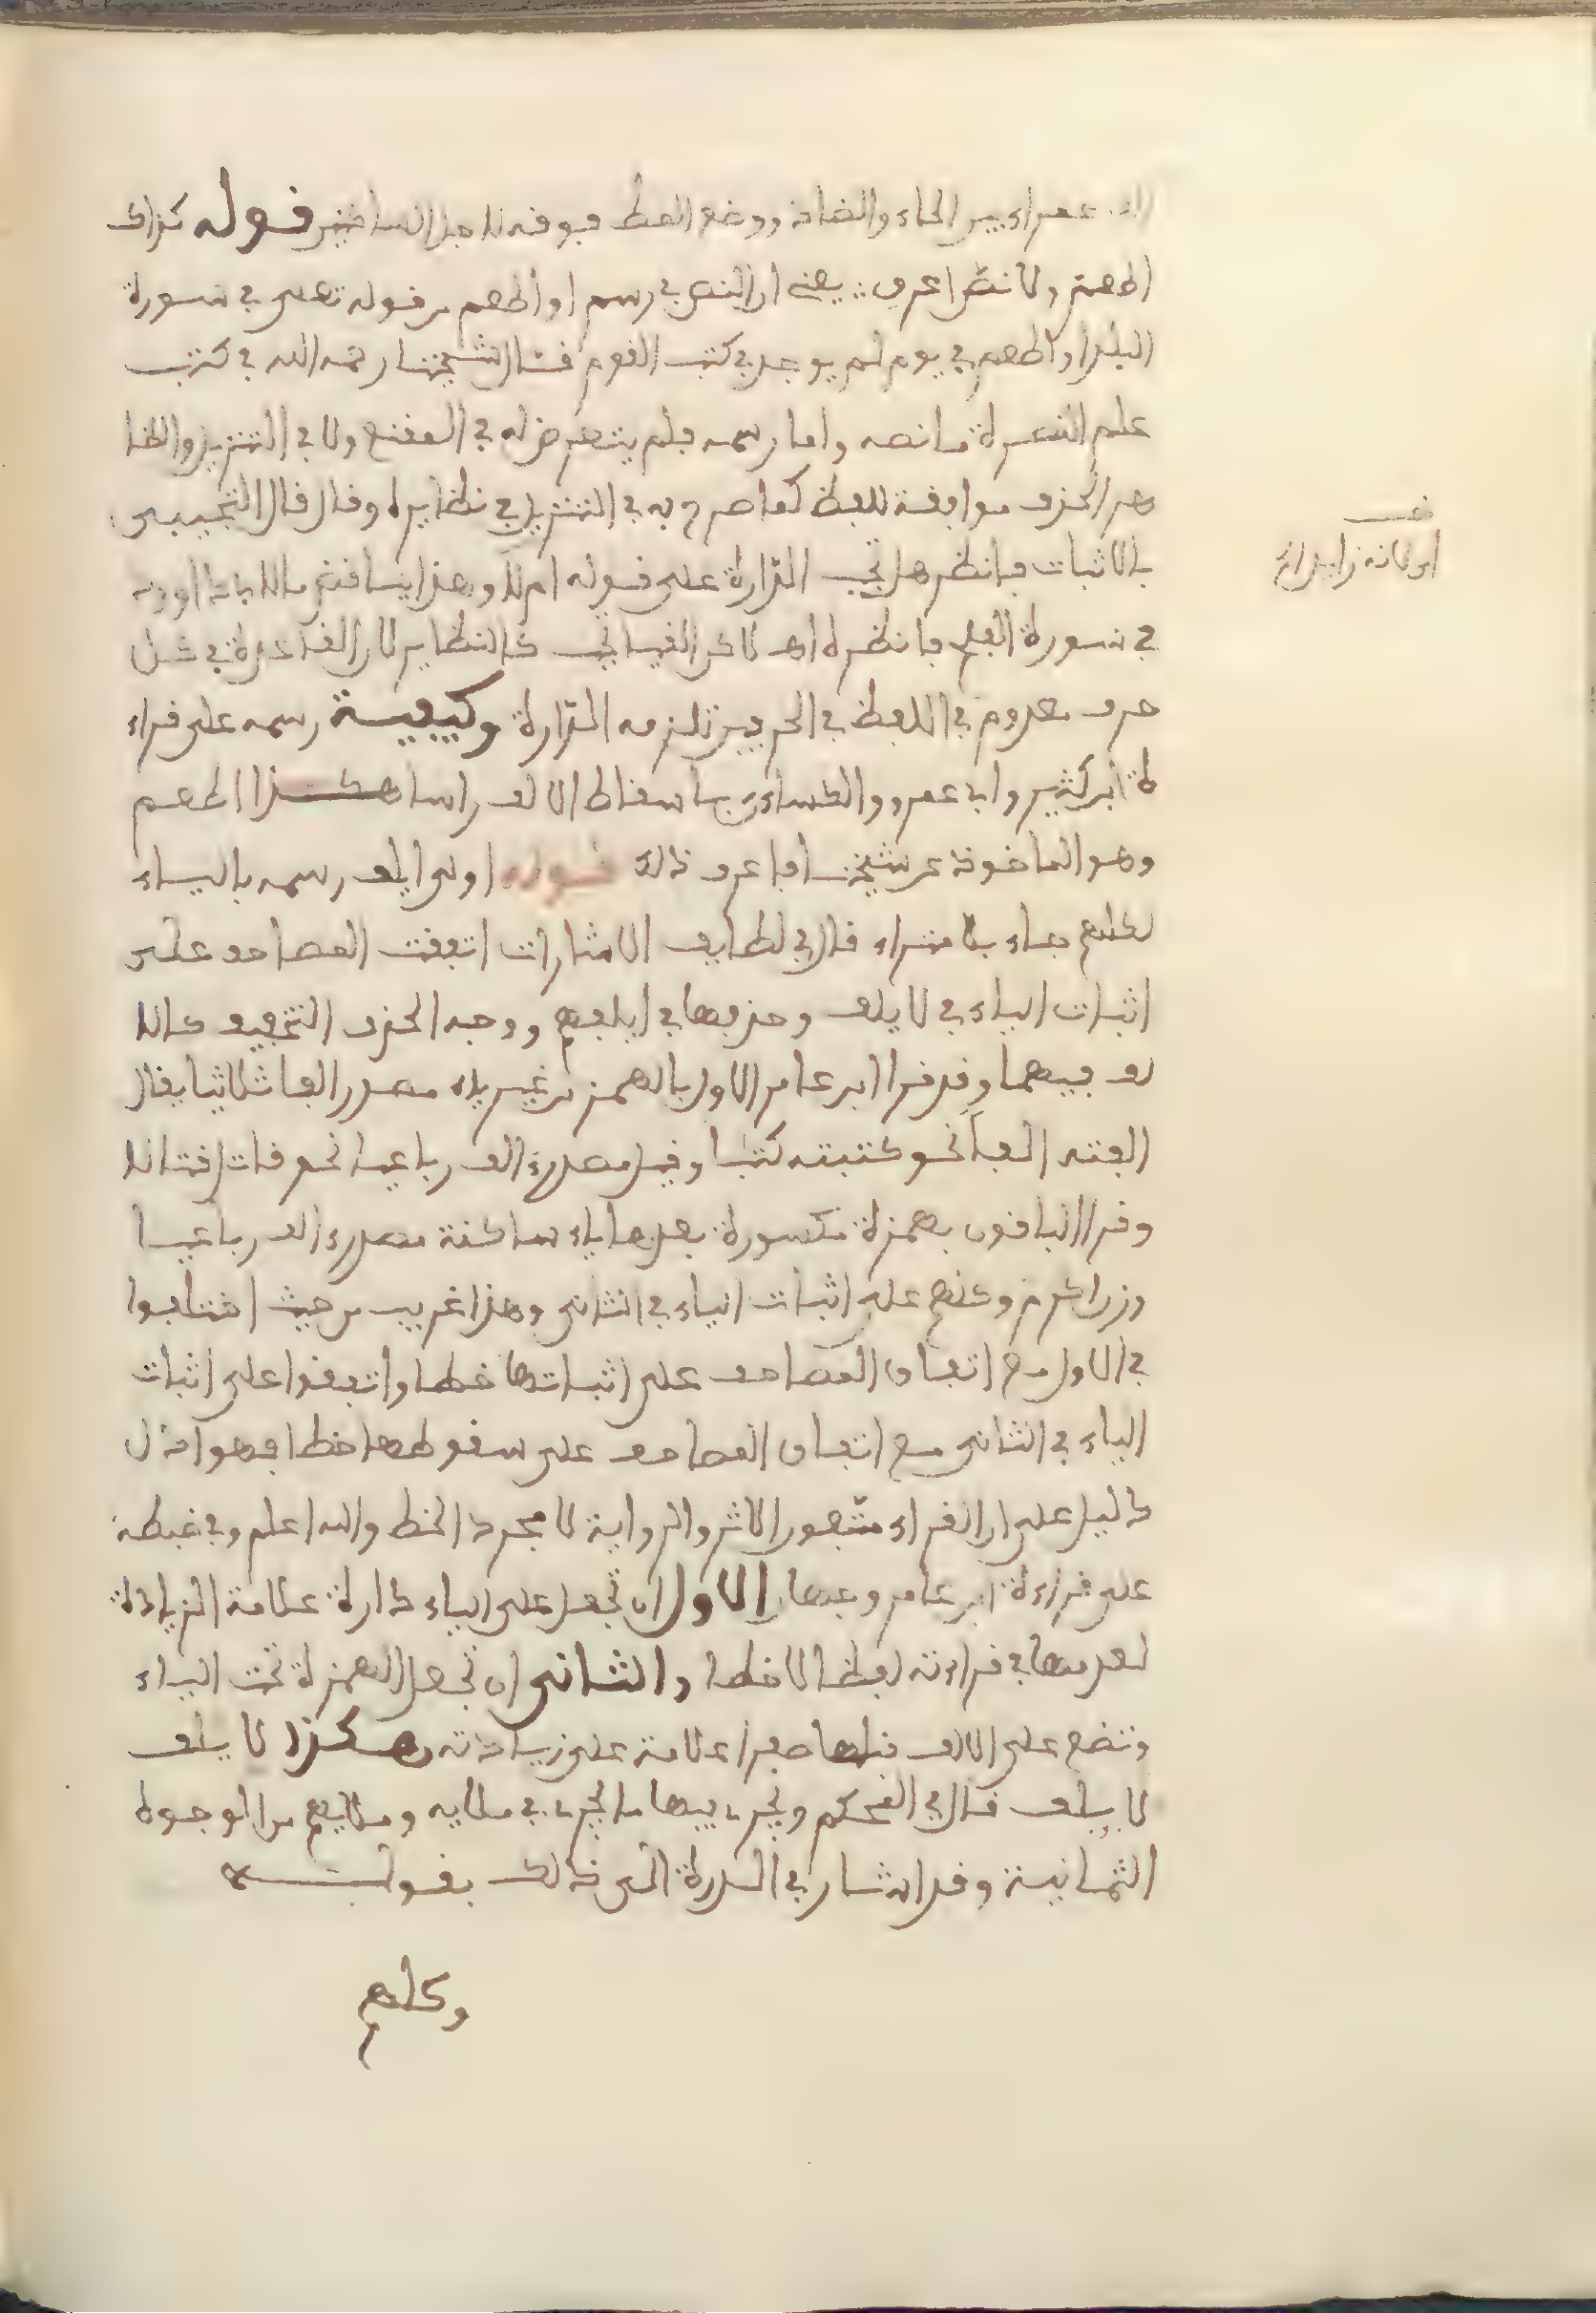 الحاء والضاد ووضع المط فوقه لاجل الساكنين قوله كذاك
اطعم ولا نص اعرف يعني ان النص في رسم او اطعم من قوله تعلى في سورة
البلد او اطعم في يوم لم يوجد في كتب القوم قال شيخنا رحمه الله في كتاب
علم النصرة ما نصه واما رسمه فلم يتعرض له في المقنع ولا في التنزيل والظا
هر الحذف موافقة للفظ كما صرح به في التنزيل في نظايره وقال قال التجيبي
بالاثبات فانظر هل تجب الدارة على قوله ام لا وهذا
في سورة فانظره اهـ لاكن القياس النظاير لان القاعدة في كل
حرف معدوم في اللفظ في الحرفين تلزمه الدارة وكيفية رسمه على قراء
ة ابن كثير وابي عمرو والكساءي باسقاط الالف راسا هكذا اطعم
وهو الماخوذ عن شيخنا فاعرف ذلك قوله اولى ايلف رسمه بالياء
لكلهم جاء بلا امتراء قال في لطايف الاشارات اتفقت المصاحف على
اثبات الياء في لايلف وحذفها في ايلفهم ووجه الحذف التخفيف كالا
لف فيهما وقد قرا ابن عامر الاول بالهمز من غير ياء مصدر الف ثلاثيا يقال
الفته الفا نحو كتبته كتبا وقيل مصدر ءالف رباعيا نحو قاتل قتالا
وقرا الباقون بهمزة مكسورة بعدها ياء ساكنة مصدر ءالف رباعيا
وزن اكرم وكلهم على اثبات الياء في الثاني وهذا غريب من حيث اختلفوا
في الاول مع اتفاق المصاحف على اثباتها خطا واتفقوا على اثبات
الياء في الثاني مع اتفاق المصاحف على سقوطها خطا فهو ادل
دليل على ان القراء متبعون الاثر والرواية لا مجرد الخط والله اعلم وفي ضبطه
على قراءة ابن عامر وجهان الاول ان تجعل على الياء دارة علامة الزيادة
لعدمها في قراءته لفظا لا خطا والثاني ان تجعل الهمزة تحت الياء
وتضع على الالف قبلها صفرا علامة على زيادته هكذا لا يلف
لا يلف قال في المحكم ويجري فيها ما يجري في ملايه وملايهم من الوجوه
الثمانية وقد اشار في الدرة الى ذلك بقوله
وكلهم